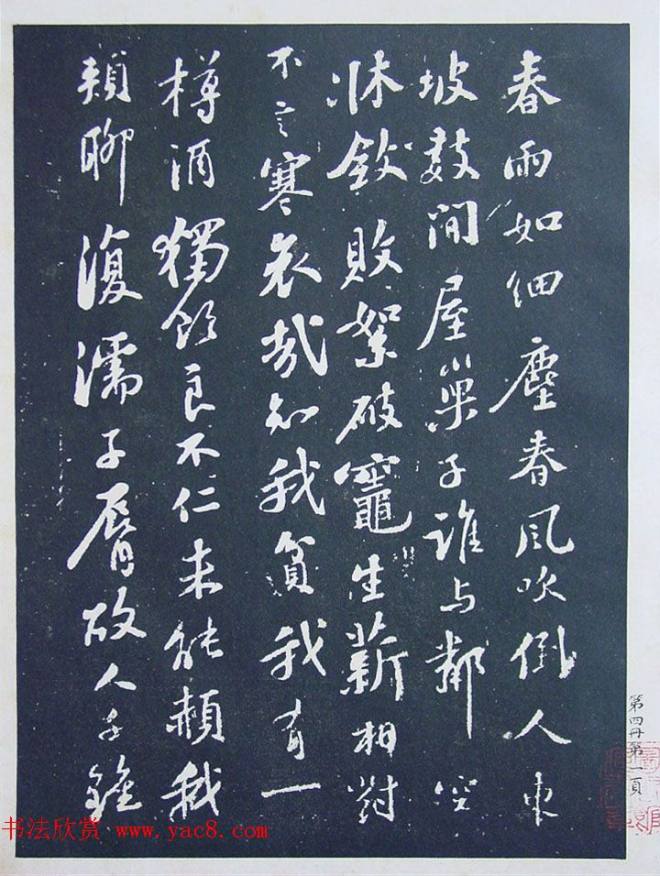 春雨如细塵春風吹倒人東
坡数間屋巢子誰与鄰空
牀斂敗絮破竈生薪相對
不言寒哀哉知我貧我有一
樽酒獨飲良不仁未能赬我
頰聊復濡子脣故人千鍾
第四冊第一頁
书法欣赏 www.yac8.com